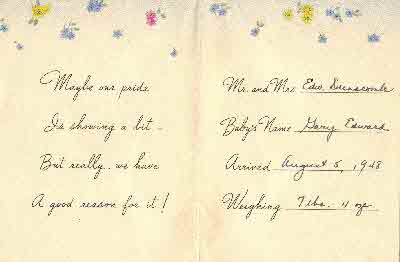 Maybe our pride
Is showing a bit –
But really.. we have
A good reason for it!
Mr. and Mrs Edw.
Baby's Name Gary Edward
Arrived August 5, 1948
Weighing 7 lbs. 4 oz.